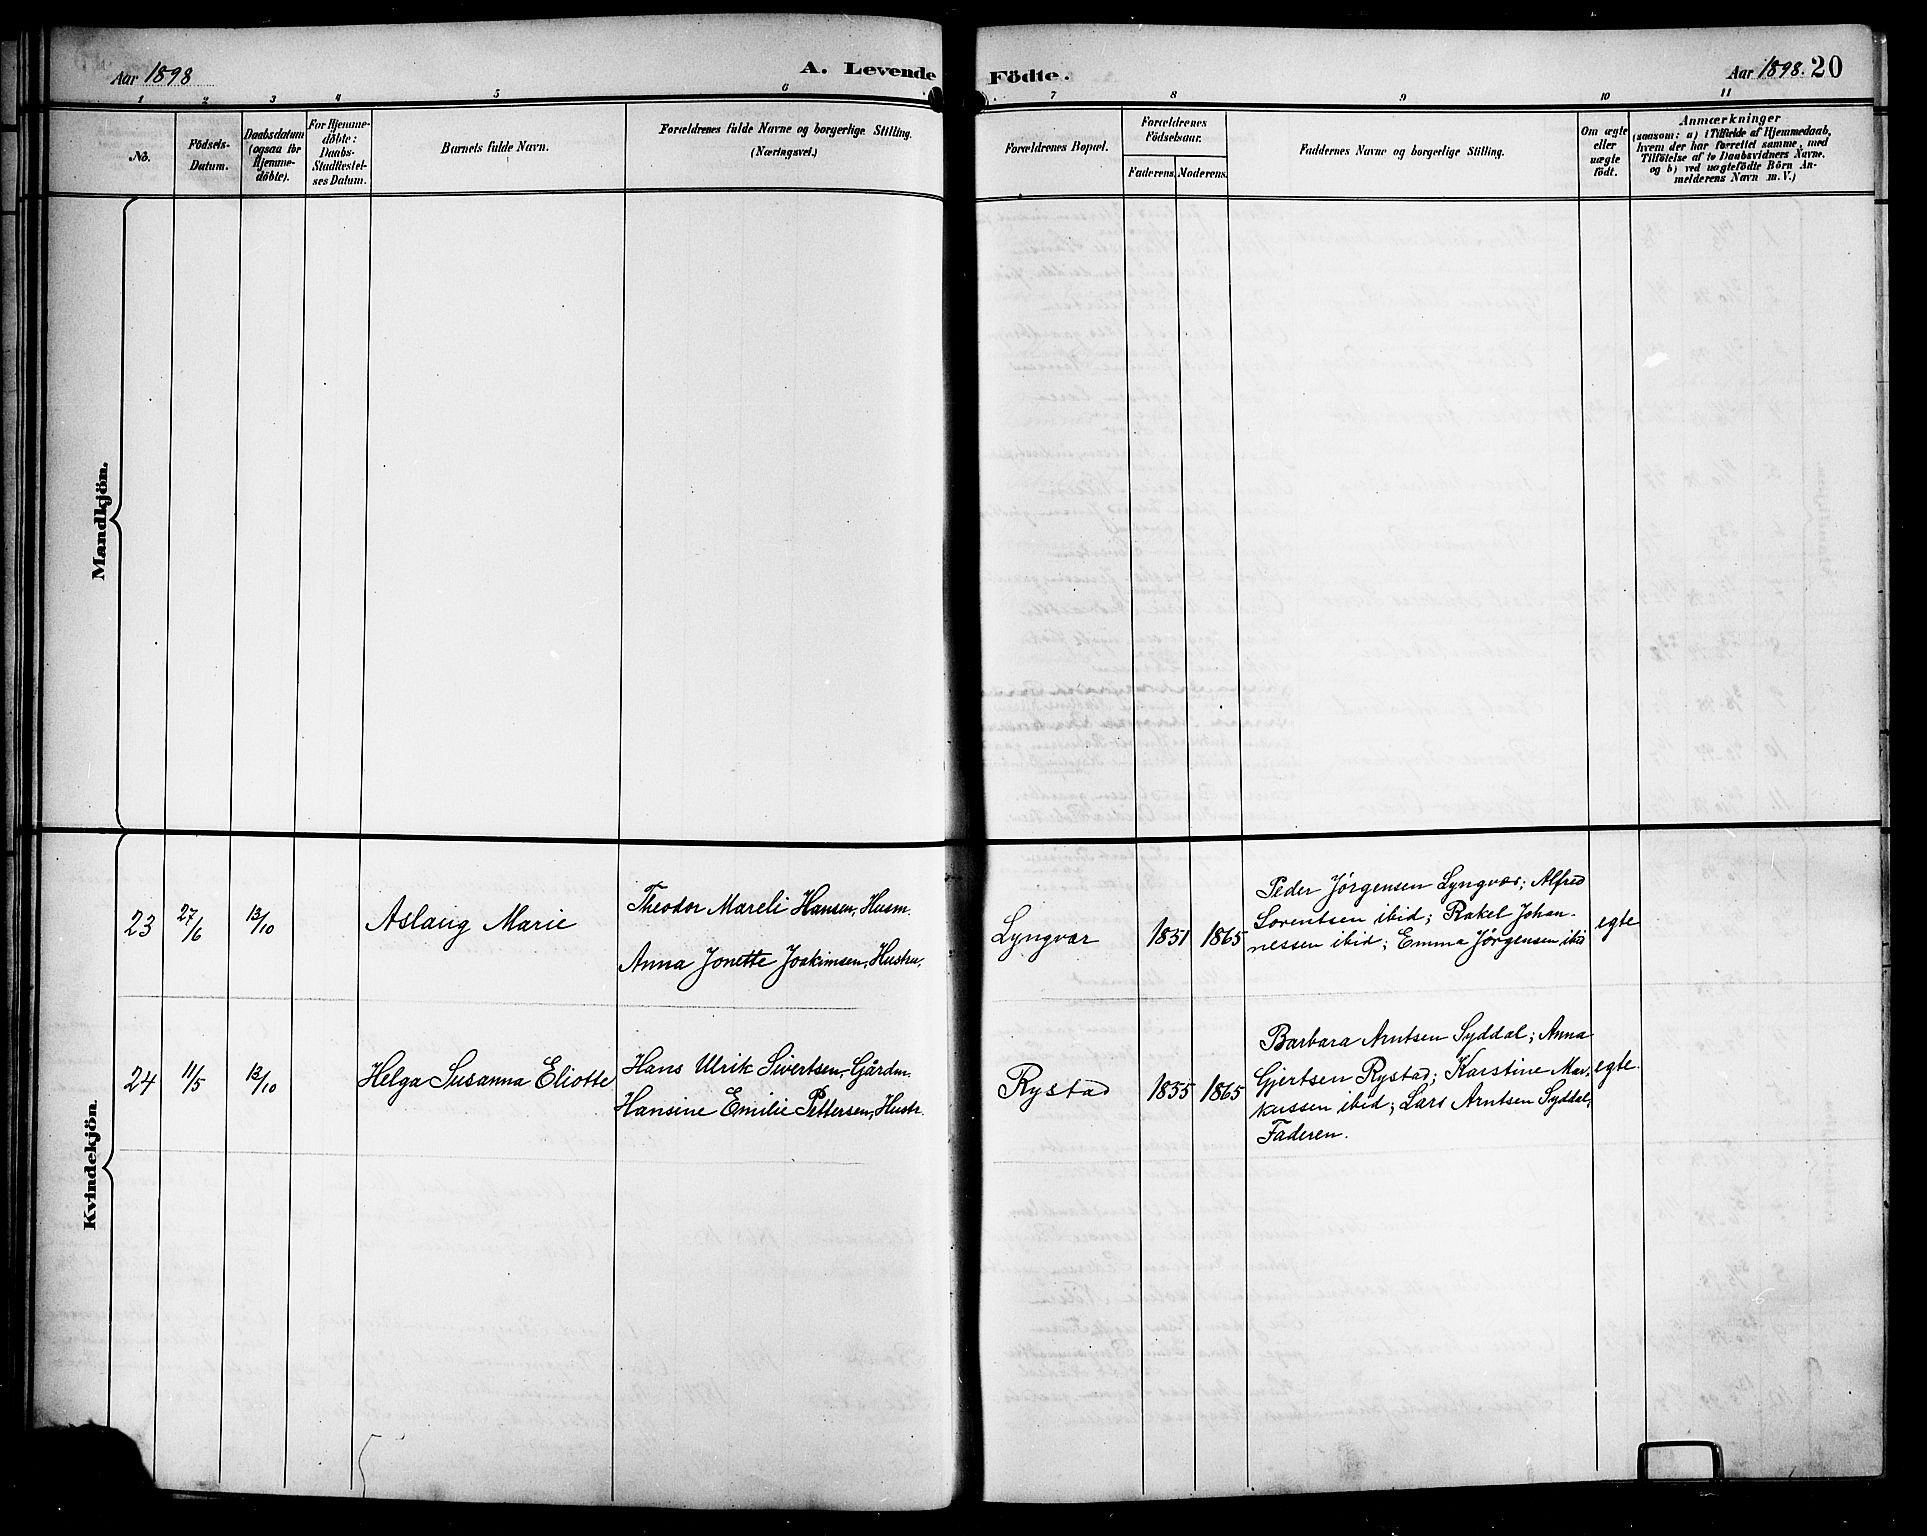 Aar 1898
A. Levende
Födte.
Aar 1898. 20
1 2 3 4 5 6 7 8 9 10 11
No.
Födsels-
Datum.
Daabsdatum
(ogsaa for
Hjemme-
döbte).
For Hjemme-
döbte:
Daabs-
Stadfæstel-
ses Datum.
Barnets fulde Navn.
Forældrenes fulde Navne og borgerlige Stilling.
(Næringsvei.)
Forældrenes Bopæl.
Forældrenes
Födselsaar.
Faderens. Moderens.
Faddernes Navne og borgerlige Stilling.
Om ægte
eller
uægte
födt.
Anmærkninger
(saasom: a) i Tilfælde af Hjemmedaab,
hvem der har forrettet samme, med
Tilföielse af to Daabsvidners Navne,
og b) ved uægtefödte Börn An-
melderens Navn m. V.)
Mandkjön.
Kvindekjön.
23 27/6 13/10 Aslaug Marie
Theodor Mareli Hansen, Husm.
Anna Jonette Joakimsen, Hustru,
Lyngvær 1851 1865
Peder Jørgensen Lyngvær; Alfred
Lorentsen ibid; Rakel Johan-
nessen ibid; Emma Jørgensen ibid
egte
24 11/5 13/10 Helga Susanna Eliotte
Hans Ulrik Sivertsen, Gårdm.
Hansine Emilie Pettersen, Hustr.
Rystad 1855 1865
Barbara Arntsen Syddal; Anna
Gjertsen Rystad; Karstine Mar-
kussen ibid; Lars Arntsen Syddal,
Faderen.
egte.